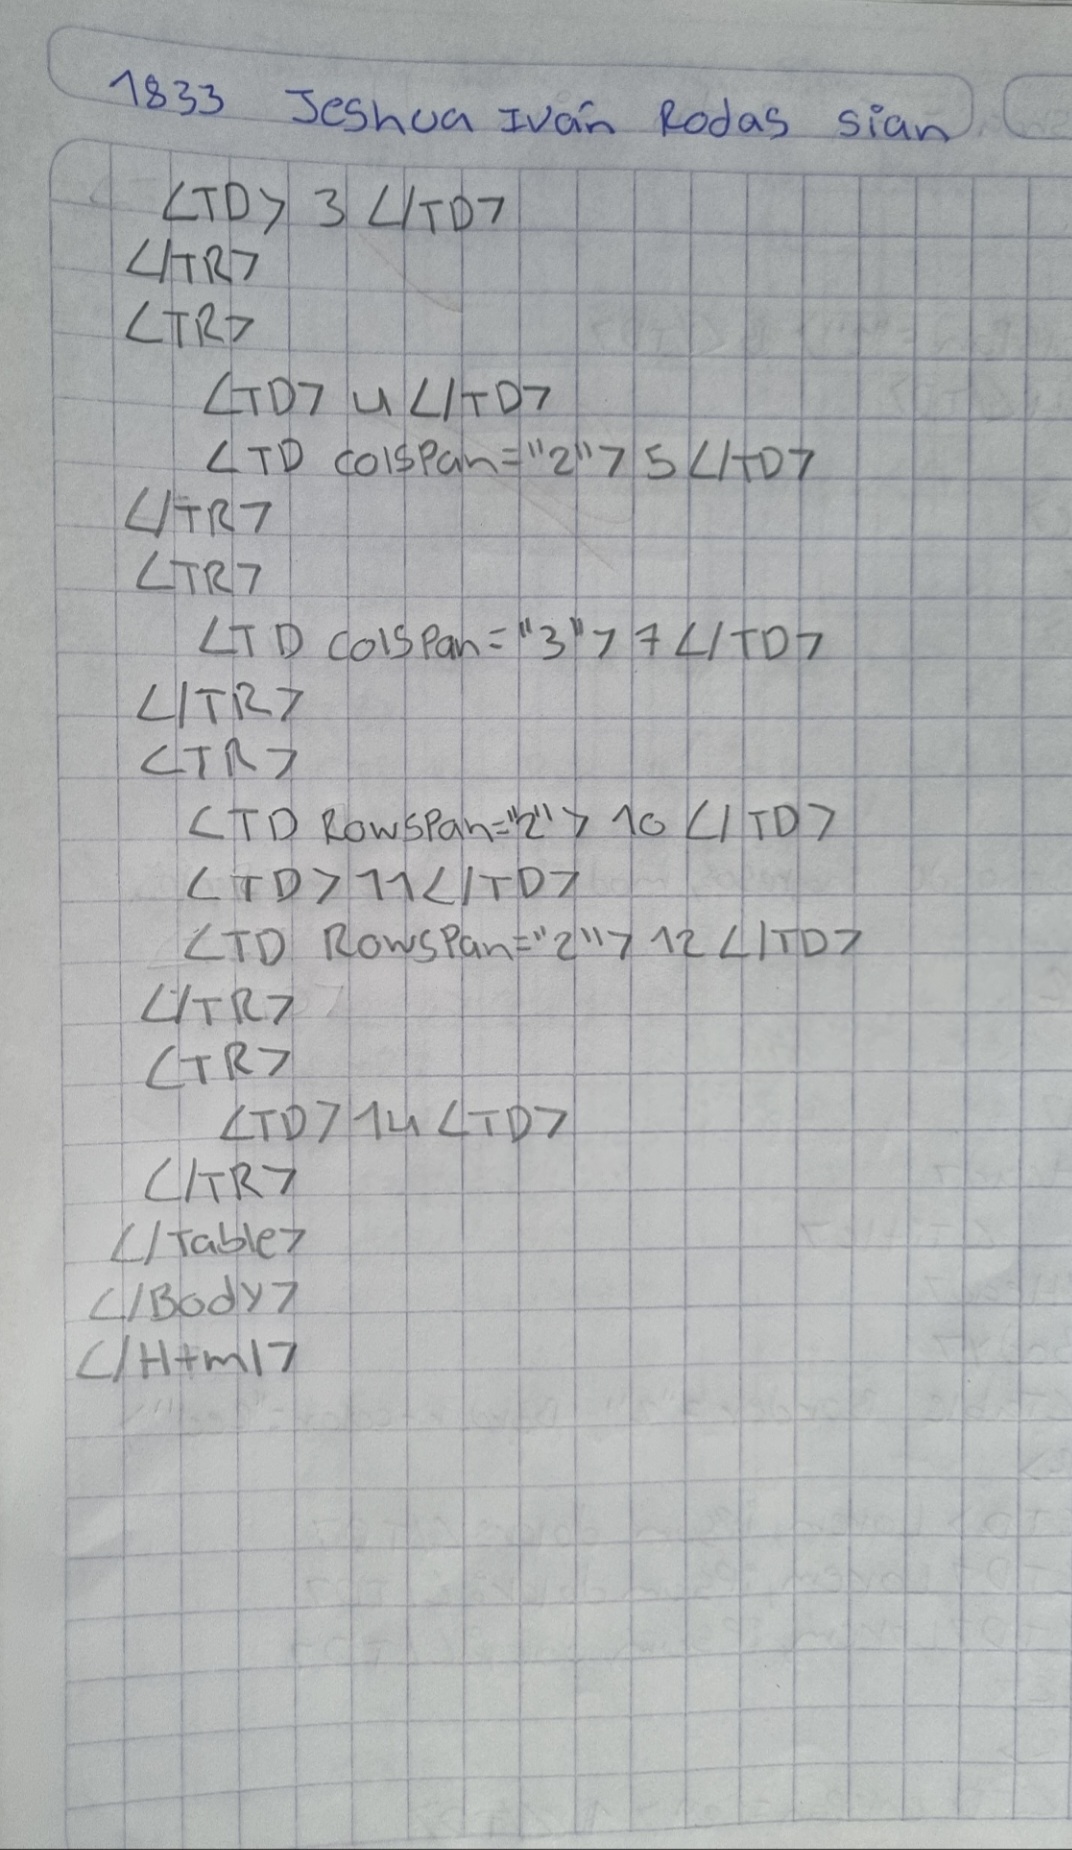 1833 Jeshua Iván Rodas sian
<TD> 3 </TD>
</TR>
<TR>
<TD> 4 </TD>
<TD colspan="2"> 5 </TD>
</TR>
<TR>
<TD colspan="3"> 7 </TD>
</TR>
<TR>
<TD Rowspan="2"> 10 </TD>
<TD> 11 </TD>
<TD Rowspan="2"> 12 </TD>
</TR>
<TR>
<TD> 14 <TD>
</TR>
</Table>
</Body>
</Html>